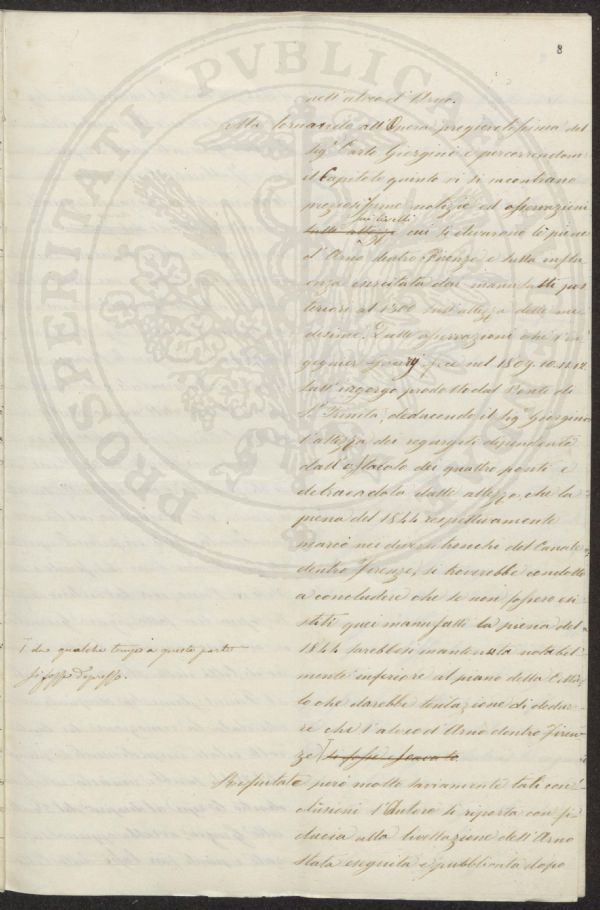 8
nell'alveo d'Arno.
Ma tornando all'Opera pregievolissima del
Sig.r Carlo Giorgini e percorrendone
il Capitolo quinto vi si incontrano
preziosissime notizie ed osservazioni
sui livelli
sulle altezze cui si elevarono le piene
d'Arno dentro Firenze e sulla influ
enza esercitata dai manufatti pos
teriori al 1300 sull'altezza delle me
desime. Dalle osservazioni che l'in
gegnier fece nel 1809.10.11.12.
sull'ingorgo prodotto dal Ponte di
S.a Trinita, deducendo il Sig.r Giorgini
l'altezza dei regurgiti dipendente
dall'ostacolo dei quattro ponti e
detraendola dalle altezze che la
piena del 1844 respettivamente
marcò nei diversi tronchi del Canale
dentro Firenze, si troverebbe condotto
a concludere che se non fossero esi
stiti quei manufatti la piena del
1844 sarebbesi mantenuta notabil
mente inferiore al piano della Città
lo che darebbe tentazione di dedur
re che l'alveo d'Arno dentro Firen
ze si fosse escavato
da qualche tempo a questa parte
si fosse depresso.
Rifiutate però molto saviamente tali con
clusioni l'Autore si riporta con fi
ducia alla livellazione dell'Arno
stata eseguita e pubblicata dopo
PROSPERITATI PVBLICAE